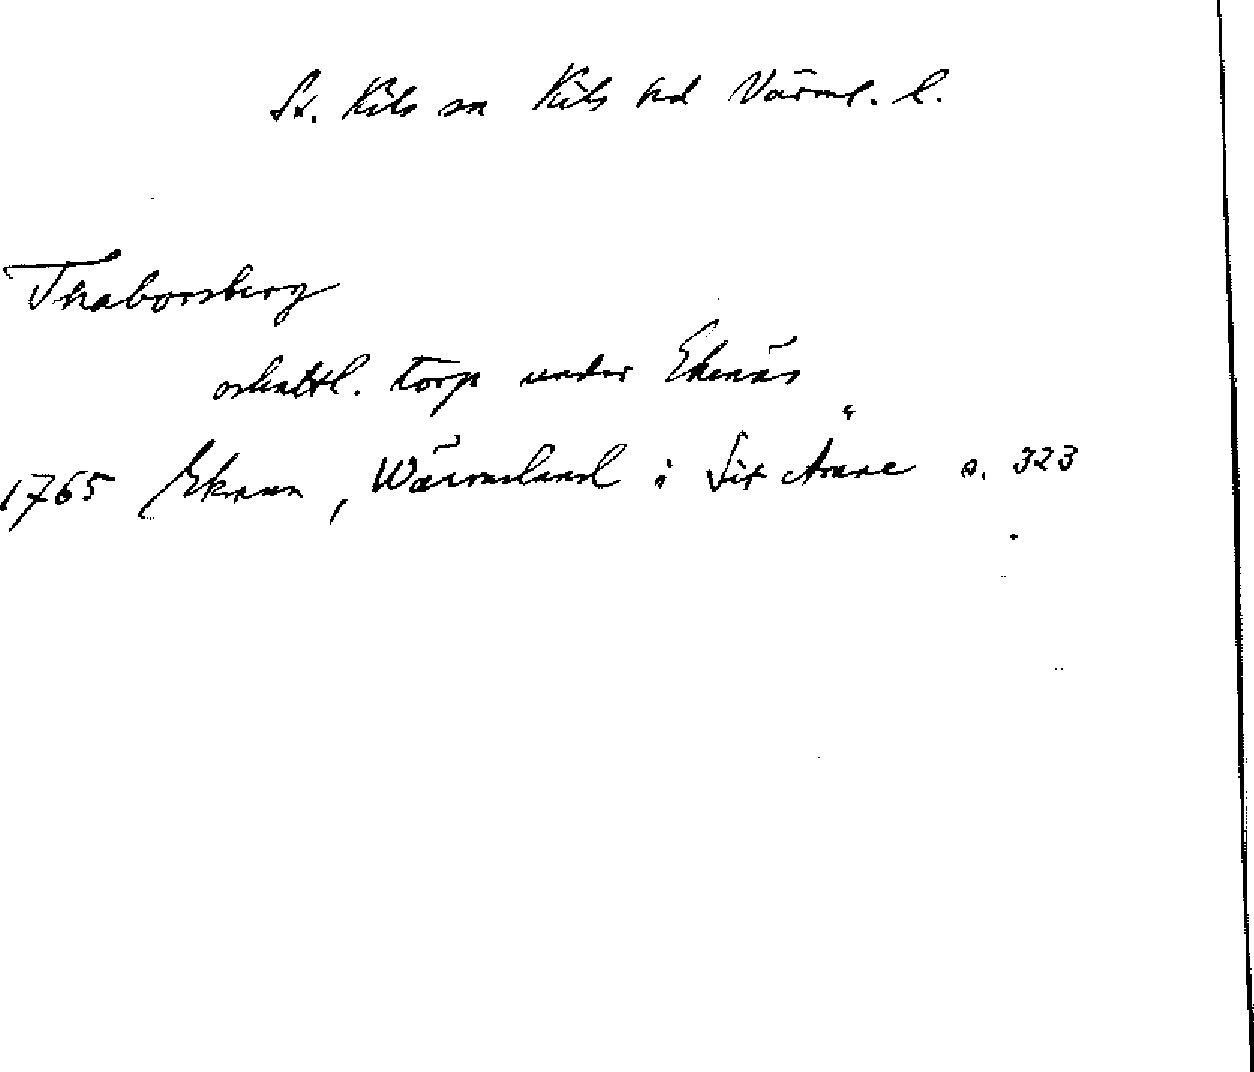 St. Kils sn Kils hd Värml. l.
Thaborsberg
oskattl. torp under Ekenäs
1765 Ekman, Wärmeland i Sit Ämne s. 323